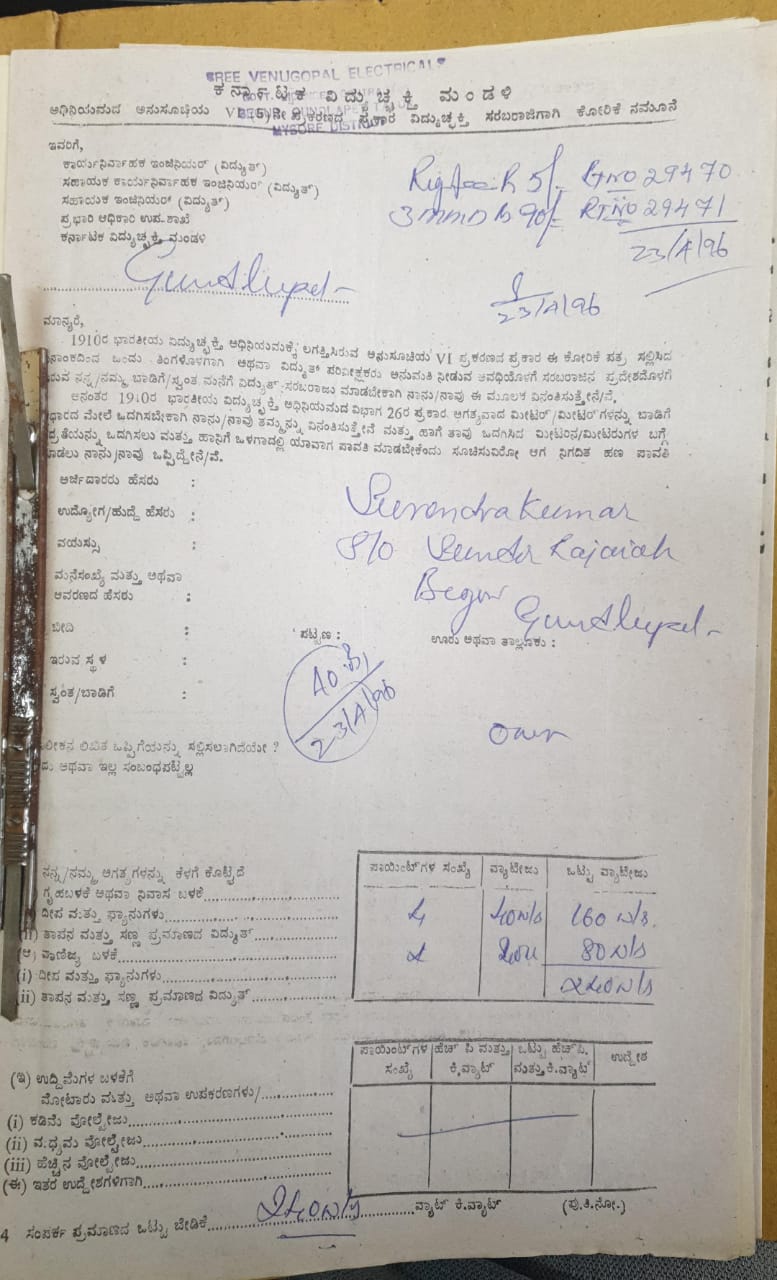 SREE VENUGOPAL ELECTRICALS
ಕರ್ನಾಟಕ ವಿದ್ಯುಚ್ಛಕ್ತಿ ಮಂಡಳಿ
ಅಧಿನಿಯಮದ ಅನುಸೂಚಿಯ VI ನೇ ಪ್ರಕರಣದ ಪ್ರಕಾರ ವಿದ್ಯುಚ್ಛಕ್ತಿ ಸರಬರಾಜಿಗಾಗಿ ಕೋರಿಕೆ ನಮೂನೆ
MYSORE DISTRICT
ಇವರಿಗೆ,
ಕಾರ್ಯನಿರ್ವಾಹಕ ಇಂಜಿನಿಯರ್ (ವಿದ್ಯುತ್)
ಸಹಾಯಕ ಕಾರ್ಯನಿರ್ವಾಹಕ ಇಂಜಿನಿಯರ್ (ವಿದ್ಯುತ್)
ಸಹಾಯಕ ಇಂಜಿನಿಯರ್ (ವಿದ್ಯುತ್)
ಪ್ರಭಾರಿ ಅಧಿಕಾರಿ ಉಪ-ಶಾಖೆ
ಕರ್ನಾಟಕ ವಿದ್ಯುಚ್ಛಕ್ತಿ ಮಂಡಳಿ
R 5/- RTNO 29470
3 MMD R 90/- RTNO 29471
23/4/96
Gundlupet
23/4/96
ಮಾನ್ಯರೆ,
1910ರ ಭಾರತೀಯ ವಿದ್ಯುಚ್ಛಕ್ತಿ ಅಧಿನಿಯಮಕ್ಕೆ ಲಗತ್ತಿಸಿರುವ ಅನುಸೂಚಿಯ VI ಪ್ರಕರಣದ ಪ್ರಕಾರ ಈ ಕೋರಿಕೆ ಪತ್ರ ಸಲ್ಲಿಸಿದ
ನಾಂಕದಿಂದ ಒಂದು ತಿಂಗಳೊಳಗಾಗಿ ಅಥವಾ ವಿದ್ಯುತ್ ಪರಿವೀಕ್ಷಕರು ಅನುಮತಿ ನೀಡುವ ಅವಧಿಯೊಳಗೆ ಸರಬರಾಜಿನ ಪ್ರದೇಶದೊಳಗೆ
ರುವ ನನ್ನ/ನಮ್ಮ ಬಾಡಿಗೆ/ಸ್ವಂತ ಮನೆಗೆ ವಿದ್ಯುತ್ ಸರಬರಾಜು ಮಾಡಬೇಕಾಗಿ ನಾನು/ನಾವು ಈ ಮೂಲಕ ವಿನಂತಿಸುತ್ತೇನೆ/ವೆ.
ಅನಂತರ 1910ರ ಭಾರತೀಯ ವಿದ್ಯುಚ್ಛಕ್ತಿ ಅಧಿನಿಯಮದ ವಿಭಾಗ 26ರ ಪ್ರಕಾರ ಅಗತ್ಯವಾದ ಮೀಟರ್/ಮೀಟರ್‌ಗಳನ್ನು ಬಾಡಿಗೆ
ಧಾರದ ಮೇಲೆ ಒದಗಿಸಬೇಕಾಗಿ ನಾನು/ನಾವು ತಮ್ಮನ್ನು ವಿನಂತಿಸುತ್ತೇನೆ ಮತ್ತು ಹಾಗೆ ತಾವು ಒದಗಿಸಿದ ಮೀಟರಿನ/ಮೀಟರುಗಳ ಬಗ್ಗೆ
ದ್ರತೆಯನ್ನು ಒದಗಿಸಲು ಮತ್ತು ಹಾನಿಗೆ ಒಳಗಾದಲ್ಲಿ ಯಾವಾಗ ಪಾವತಿ ಮಾಡಬೇಕೆಂದು ಸೂಚಿಸುವಿರೋ ಆಗ ನಿಗದಿತ ಹಣ ಪಾವತಿ
ಾಡಲು ನಾನು/ನಾವು ಒಪ್ಪಿದ್ದೇನೆ/ವೆ.
ಅರ್ಜಿದಾರರು ಹೆಸರು :
Surendra Kumar
ಉದ್ಯೋಗ/ಹುದ್ದೆ ಹೆಸರು :
ವಯಸ್ಸು :
S/o Sunder Rajaiah
ಮನೆಸಂಖ್ಯೆ ಮತ್ತು ಅಥವಾ
ಆವರಣದ ಹೆಸರು :
Begur Gundlupet
ಬೀದಿ : ಪಟ್ಟಣ : ಊರು ಅಥವಾ ತಾಲ್ಲೂಕು :
ಇರುವ ಸ್ಥಳ :
ಸ್ವಂತ/ಬಾಡಿಗೆ :
23/4/96
own
ಲೀಕನ ಲಿಖಿತ ಒಪ್ಪಿಗೆಯನ್ನು ಸಲ್ಲಿಸಲಾಗಿದೆಯೇ ?
ದು ಅಥವಾ ಇಲ್ಲ ಸಂಬಂಧಪಟ್ಟಿಲ್ಲ
ನನ್ನ/ನಮ್ಮ ಅಗತ್ಯಗಳನ್ನು ಕೆಳಗೆ ಕೊಟ್ಟಿದೆ
ಪಾಯಿಂಟ್‌ಗಳ ಸಂಖ್ಯೆ ವ್ಯಾಟೇಜು ಒಟ್ಟು ವ್ಯಾಟೇಜು
ಗೃಹಬಳಕೆ ಅಥವಾ ನಿವಾಸ ಬಳಕೆ
ದೀಪ ಮತ್ತು ಫ್ಯಾನುಗಳು 4 40w/s 160 w/s
ತಾಪನ ಮತ್ತು ಸಣ್ಣ ಪ್ರಮಾಣದ ವಿದ್ಯುತ್
(ಆ) ವಾಣಿಜ್ಯ ಬಳಕೆ 2 40w 80 w/s
(i) ದೀಪ ಮತ್ತು ಫ್ಯಾನುಗಳು
240w/s
ii) ತಾಪನ ಮತ್ತು ಸಣ್ಣ ಪ್ರಮಾಣದ ವಿದ್ಯುತ್
ಪಾಯಿಂಟ್‌ಗಳ ಸಂಖ್ಯೆ ಹೆಚ್ ಪಿ ಮತ್ತು ಕಿ.ವ್ಯಾಟ್ ಒಟ್ಟು ಹೆಚ್.ಪಿ. ಮತ್ತು ಕಿ.ವ್ಯಾಟ್ ಉದ್ದೇಶ
(ಇ) ಉದ್ದಿಮೆಗಳ ಬಳಕೆಗೆ
ಮೋಟಾರು ಮತ್ತು ಅಥವಾ ಉಪಕರಣಗಳು/
(i) ಕಡಿಮೆ ವೋಲ್ಟೇಜು
(ii) ಮಧ್ಯಮ ವೋಲ್ಟೇಜು
(iii) ಹೆಚ್ಚಿನ ವೋಲ್ಟೇಜು
(ಈ) ಇತರ ಉದ್ದೇಶಗಳಿಗಾಗಿ
4 ಸಂಪರ್ಕ ಪ್ರಮಾಣದ ಒಟ್ಟು ಬೇಡಿಕೆ 240w/s ವ್ಯಾಟ್ ಕಿ.ವ್ಯಾಟ್ (ಪು.ತಿ.ನೋ.)